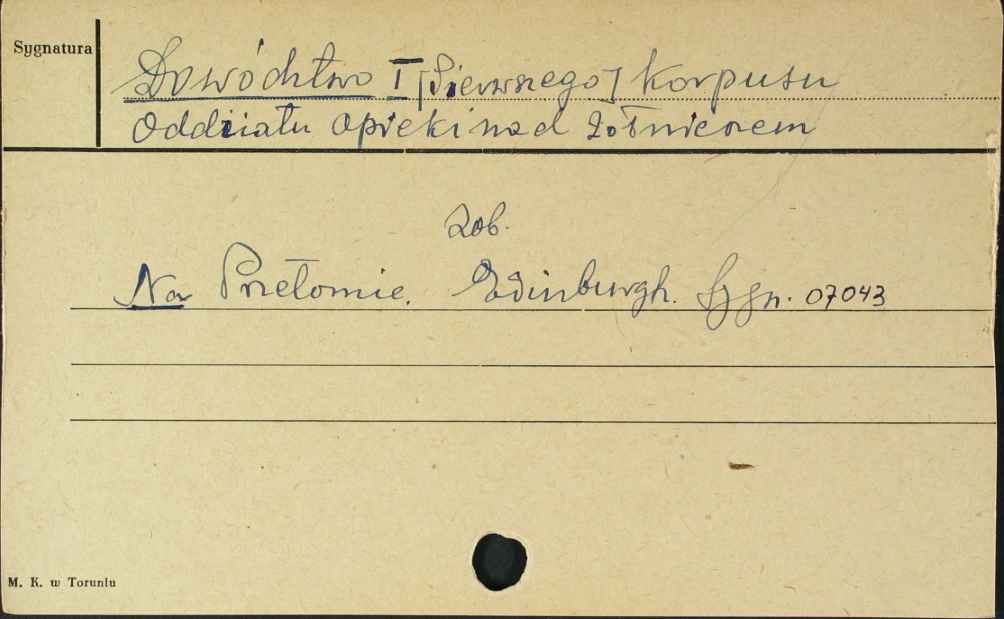 Sygnatura
Dowództwo I [Pierwszego] Korpusu
Oddziału Opieki nad Żołnierzem
Zob.
Na Przełomie. Edinburgh. Sygn. 07043
M. K. w Toruniu